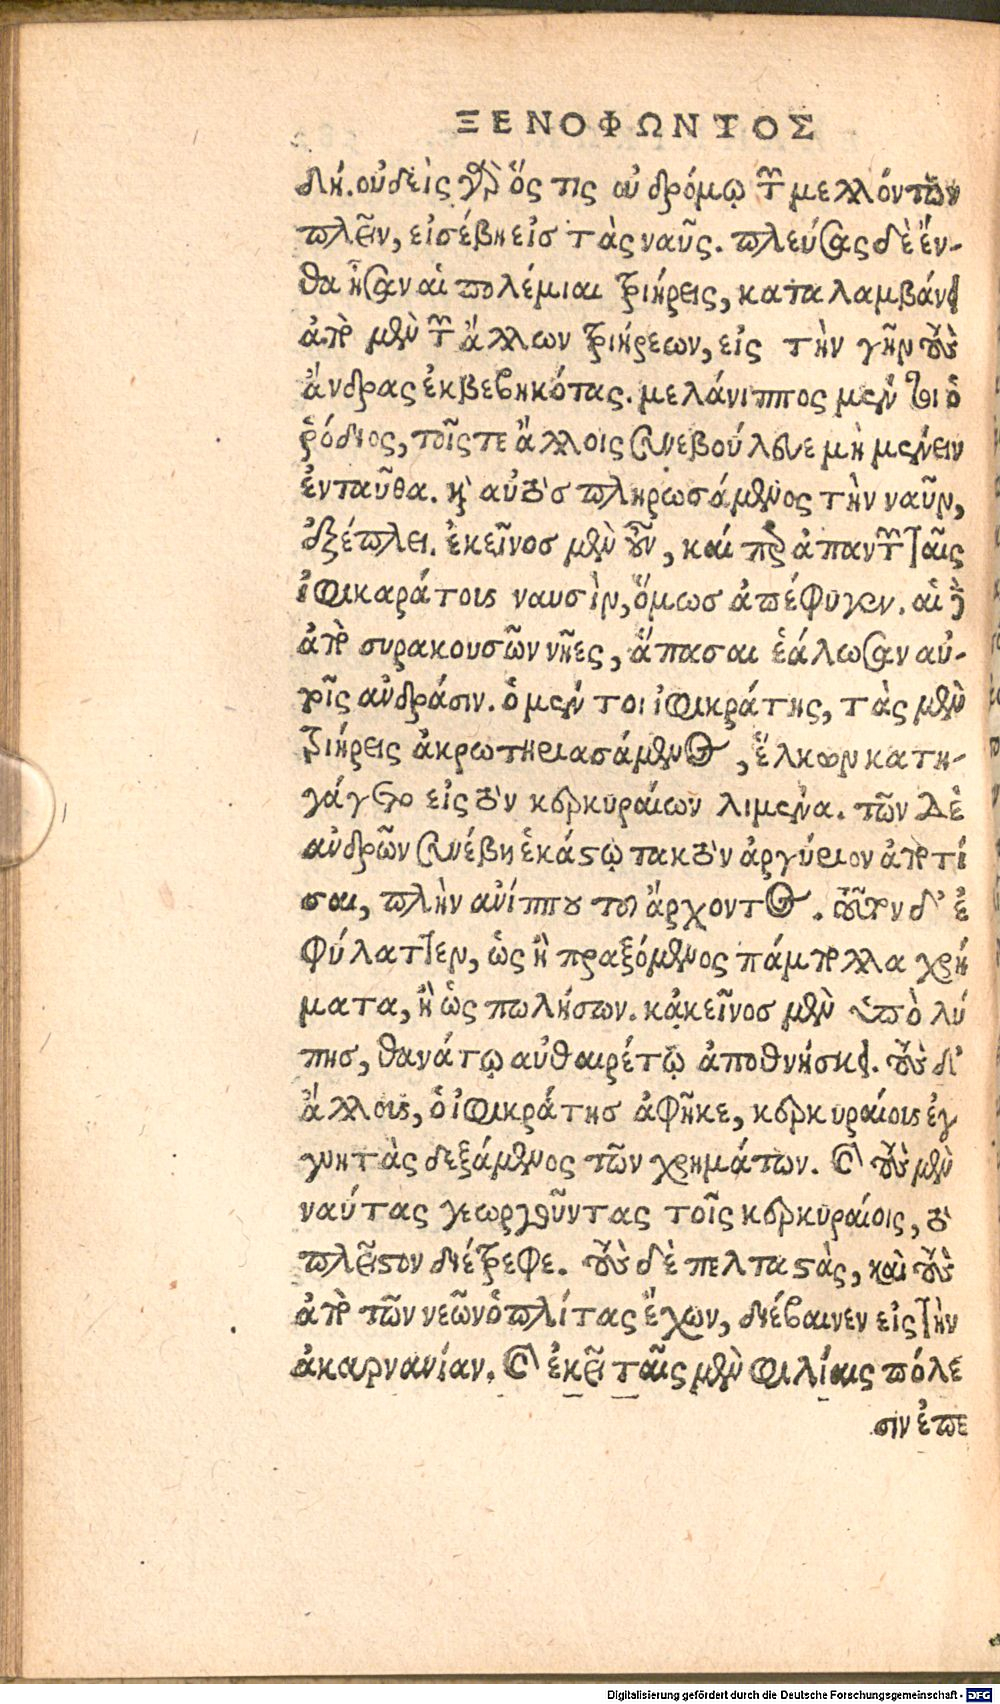 ΞΕΝΟΦΩΝΤΟΣ
δή. οὐδεὶς γὰρ ὅς τις οὐ δρόμῳ τῶν μελλόντων
πλεῖν, εἰσέβη εἰσ τὰς ναῦς. πλεύσας δὲ ἔν-
θα ἦσαν αἱ πολέμιαι τριήρεις, καταλαμβάνει
ἀπὸ μὲν τῶν ἄλλων τριήρεων, εἰς τὴν γῆν τοὺς
ἄνδρας ἐκβεβηκότας. μελάνιππος μέντοι ὁ
ῥόδιος, τοῖς τε ἄλλοις συνεβούλευε μὴ μένειν
ἐνταῦθα. καὶ αὐτὸσ πληρωσάμενος τὴν ναῦν,
ἐξέπλει. ἐκεῖνοσ μὲν οὖν, καί περ ἀπαντῶν ταῖς
ἰφικαράτους ναυσὶν, ὅμωσ ἀπέφυγεν. αἱ δὲ
ἀπὸ συρακουσῶν νῆες, ἅπασαι ἑάλωσαν αὐ-
τοῖς ἀνδράσιν. ὁ μέν τοι ἰφικράτης, τὰς μὲν
τριήρεις ἀκρωτηριασάμενος, ἕλκων κατη-
γάγετο εἰς τὸν κερκυραίων λιμένα. τῶν δὲ
ἀνδρῶν συνέβη ἑκάστῳ τακτὸν ἀργύριον ἀποτί
σαι, πλὴν ἀνίππου τοῦ ἄρχοντος. τοῦτον δ' ἐ
φύλαττεν, ὡς ἢ πραξόμενος πάμπολλα χρή
ματα, ἢ ὡς πωλήσων. κἀκεῖνοσ μὲν ὑπὸ λύ
πησ, θανάτῳ αὐθαιρέτῳ ἀποθνήσκει. τοὺς δ'
ἄλλους, ὁ ἰφικράτησ ἀφῆκε, κερκυραίους ἐγ
γυητὰς δεξάμενος τῶν χρημάτων. καὶ τοὺς μὲν
ναύτας γεωργοῦντας τοῖς κερκυραίοις, τὸ
πλεῖστον διέτρεφε. τοὺς δὲ πελταστὰς, καὶ τοὺς
ἀπὸ τῶν νεῶν ὁπλίτας ἔχων, διέβαινεν εἰς τὴν
ἀκαρνανίαν. καὶ ἐκεῖ ταῖς μὲν φιλίαις πόλε
σιν ἐπε
Digitalisierung gefördert durch die Deutsche Forschungsgemeinschaft - DFG